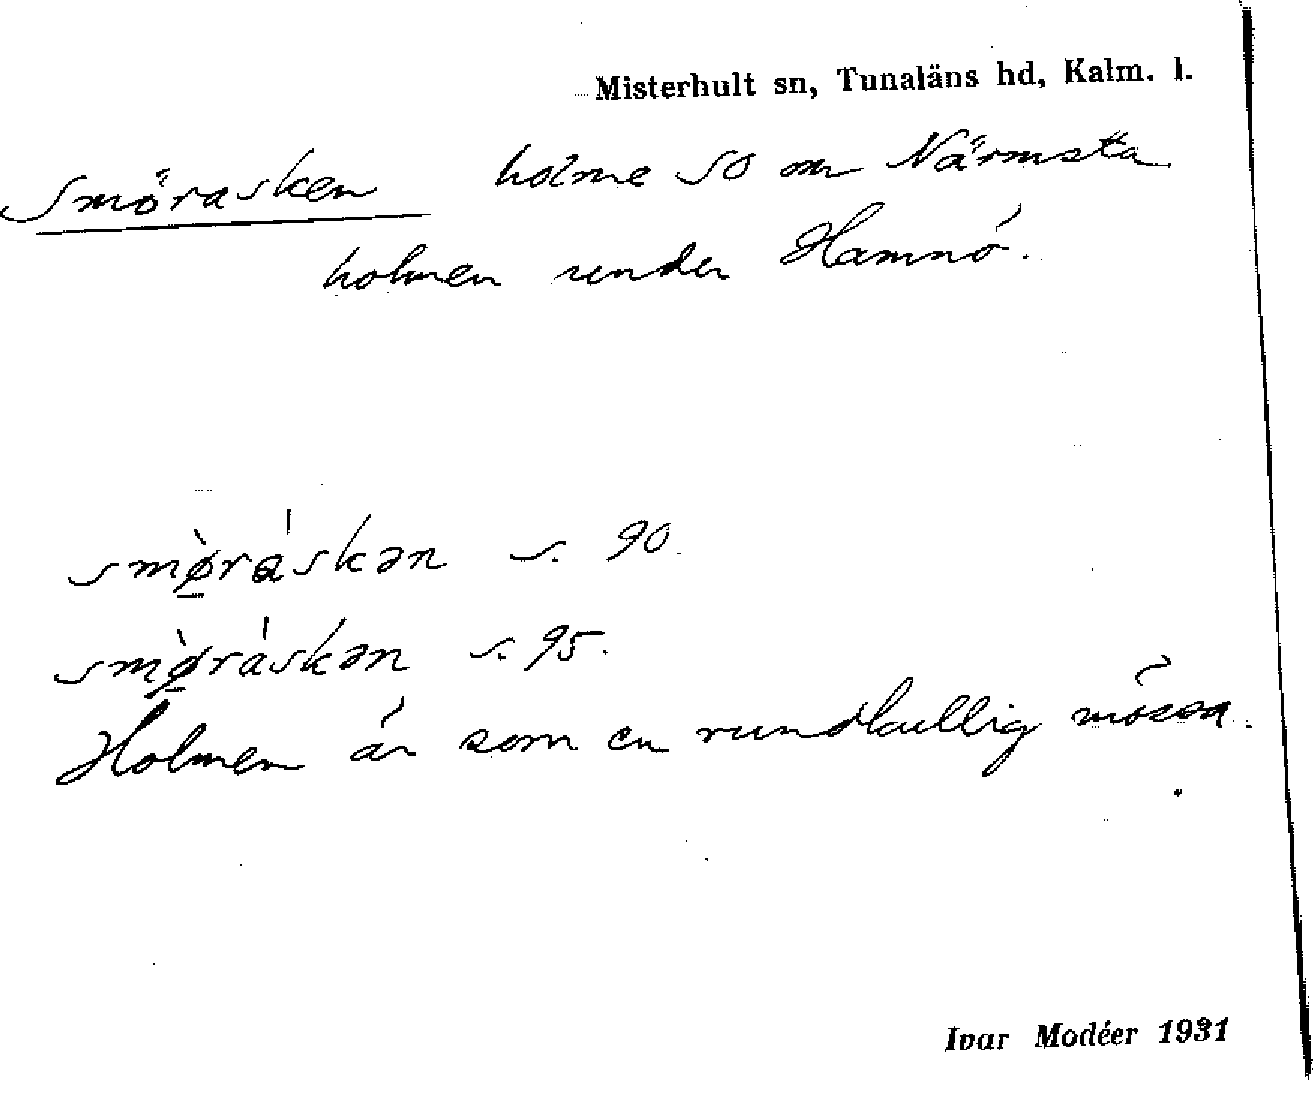 Misterhult sn, Tunaläns hd, Kalm. l.
Smörasken holme SO om Närmsta
holmen under Hamnö.
smø̀ráskən s. 90.
smø̀ráskən s. 95.
Holmen är som en rundkullig mössa.
Ivar Modéer 1931